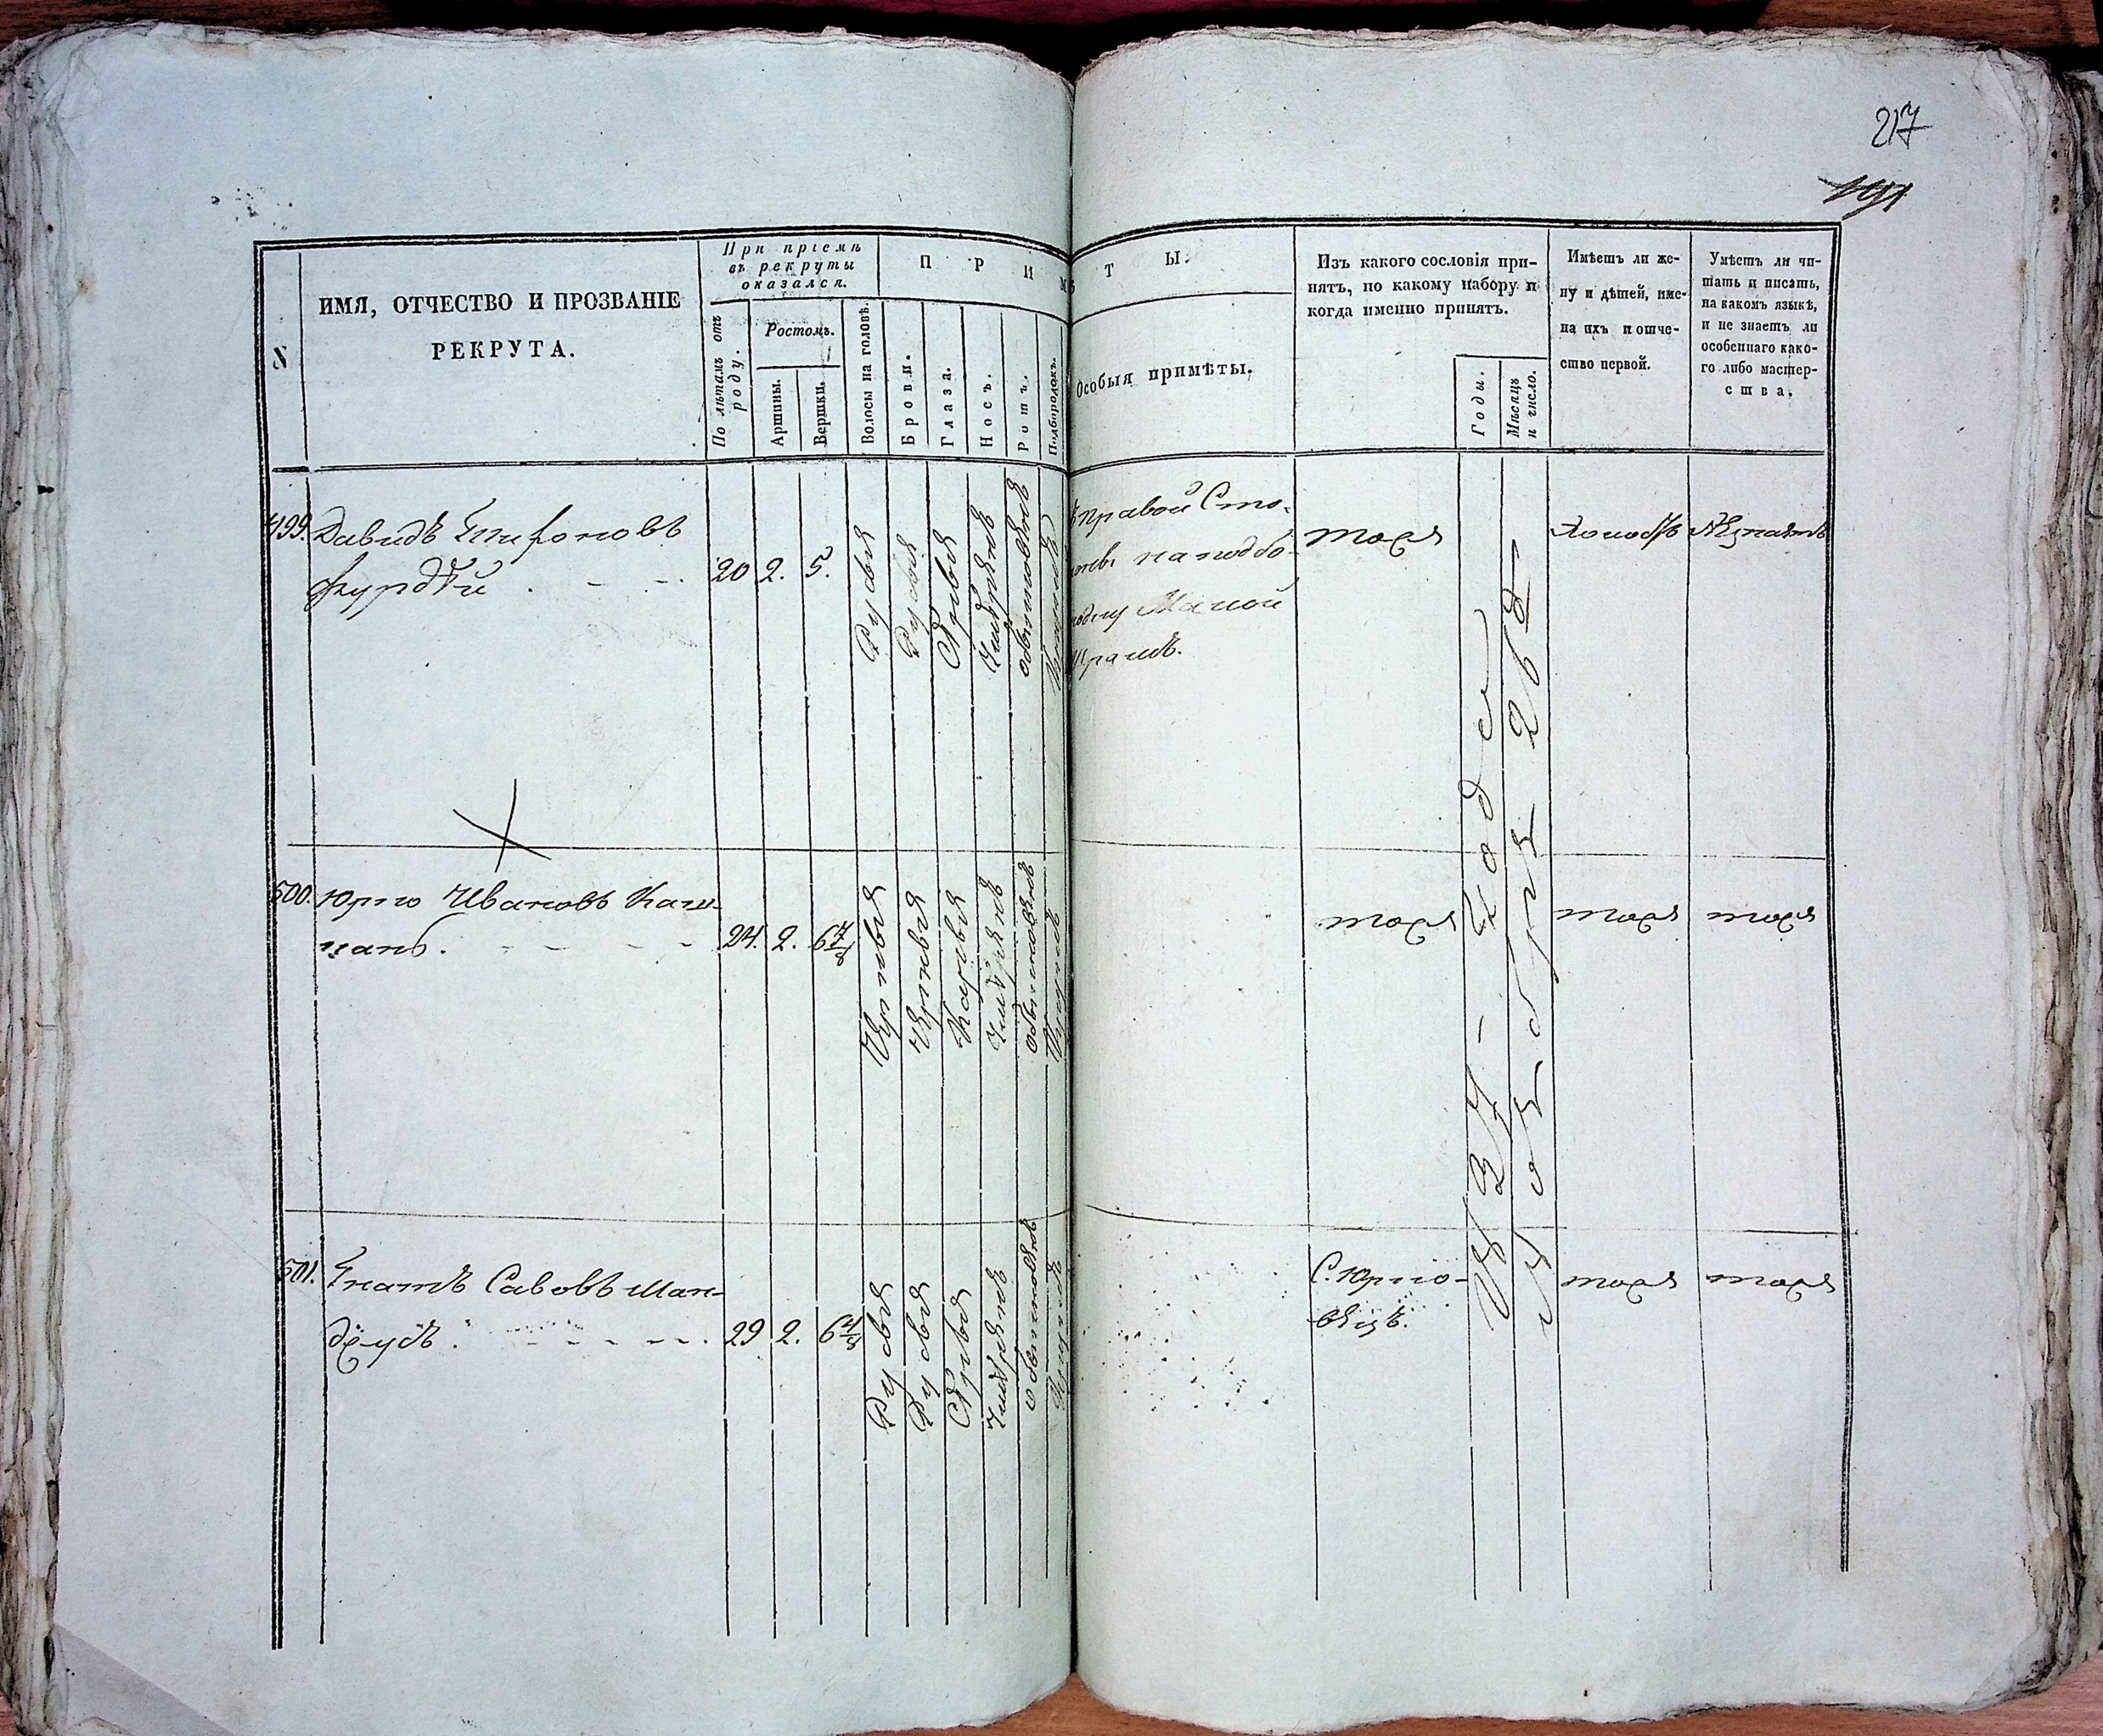 217
191
N
ИМЯ, ОТЧЕСТВО И ПРОЗВАНІЕ
РЕКРУТА.
При пріемѣ
въ рекруты
оказался.
По лѣтамъ отъ
роду.
Ростомъ.
Аршины.
Вершки.
П Р И М Ѣ Т Ы.
Волосы на головѣ.
Брови.
Глаза.
Носъ.
Ротъ.
Подбородокъ.
Особыя примѣты.
Изъ какого сословія при-
нятъ, по какому набору и
когда именно принятъ.
Годы.
Мѣсяцъ
и число.
Имѣетъ ли же-
ну и дѣтей, име-
на ихъ и отче-
ство первой.
Умѣетъ ли чи-
тать и писать,
на какомъ языкѣ,
и не знаетъ ли
особеннаго како-
го либо мастер-
ства.
499. Давидъ
20 2. 5. Русыя Русыя Сѣрыя Умѣренъ обыкновенъ
правой Сто-
на подбо-
Малой
Шрамъ.
тоже Холостъ Незнаетъ
годе
26
500. Юрко Ивановъ Каш-
канъ.
24. 2. 6 7/8 Черныя Черныя Карыя Умѣренъ обыкновенъ
тоже тоже тоже
501. Игнатъ Савовъ Ман-
29 2. 6 4/8 Русыя Русыя Сѣрыя Умѣренъ обыкновенъ
С. Юрко-
вецъ.
тоже тоже